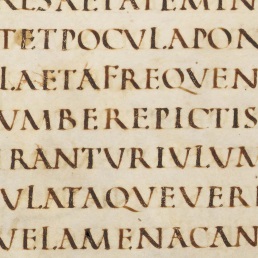 RESAETATEMIN
TETPOCVLAPON
LAETAFREQVEN
VMBEREPICTIS
IRANTVRIVLVM
VLATAQVEVER
VELAMENACAN